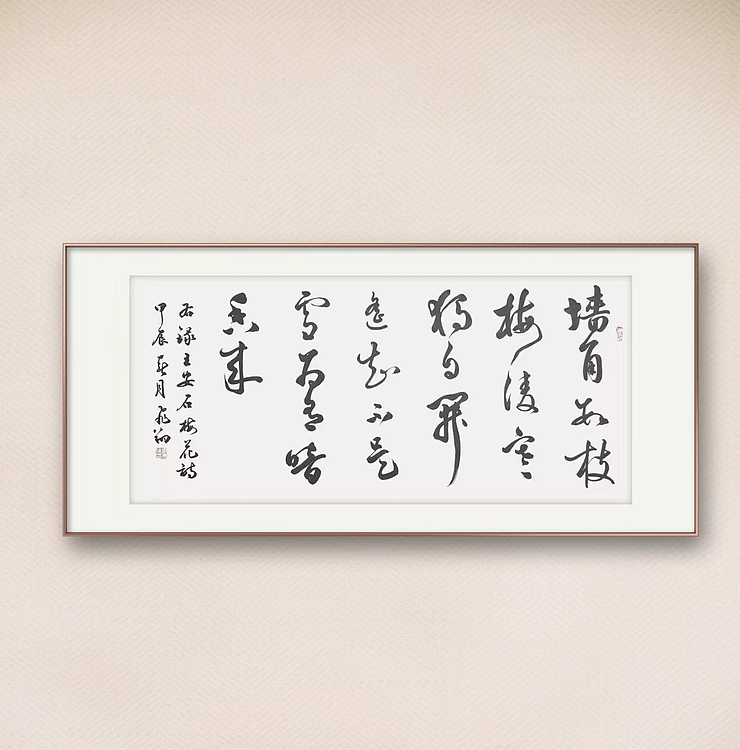 墙角数枝
梅凌寒
独自開
遥知不是
雪为有暗
香来
右録王安石梅花詩
甲辰月